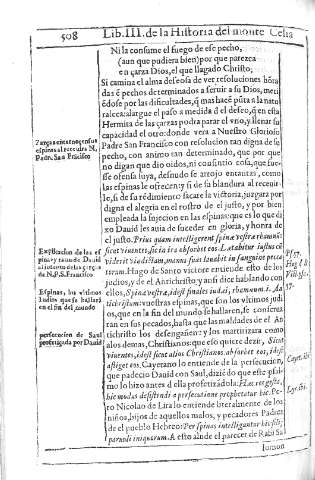 508 Lib. III. de la Historia del monte Celia
Ni la consume el fuego de ese pecho,
(aun que pudiera bien) por que parezca
en çarza Dios, el que llagado Christo,
Si camina el alma deseosa de ver resoluciones hõra
das ẽ pechos determinados a seruir a su Dios, met
iẽdose por las dificultades, q̃ mas hacẽ
raleca: alargue el paso a medida dl deseo, q̃ en esta
Hermita de las çarzas podra parar el vno, y llenar su
capacidad el otro: donde vera a Nuestro Glorioso
Padre San Francisco con resolucion tan digna de su
pecho, con animo tan determinado, que por que
no digan que dio oidos, ni cousintio cosa, que fue-
se ofensa suya, desnudo se arrojo en estas, como
las espinas le ofrecen: y si de su blandura al recenir
le, si de su rẽdimiento sacare la victoria, juzgara por
digna el alegria en el rostro de el justo, y por bien
empleada la sujecion en las espinas: que es lo que di
xo Dauid les auia de suceder en gloria, y honra de
el justo. Prius quam intelligerent spinæ vestræ rhamnum:
sicut viuentes, sic in ira absorbet eos. Lætabitur iustus cũ
viderit vindictam, manus suas lauabit in sanguine pecca
torum. Hugo de Santo victore entiende esto de los
judios, y de el Antichristo y ansi dice hablando con
ellos, Spinæ vestræ, idest finales iudæi, rhamnum i. An
tichristum: vuestras espinas, que son los vltimos judi
os, que en la fin del mundo se hallaren, se conuerti
ran en sus pecados, hasta que las maldades de el An
tichristo los desengañen: y los martirizara como
a los demas, Christianos: que eso quiere dezir, Sicut
viuentes, idest sicut alios Christianos. absorbet eos, idest
Cayetano lo entiende de la persecucion,
que padecio Dauid con Saul, dizido que este psal-
mo lo hizo antes d ella profetizãdola: Hæc
hic modus desistendi a persecutione prophetatur hic. Pe-
ro Nicolao de Lira lo entiende literalmente de los
niños, hijos de aquellos malos, y pecadores Padres
de el pueblo Hebreo: Per spinas intelligantur hic filij
paruuli iniquorum. A esto alude el parecer de Rabi Sa
lomon
espinas al recenir a N.
Padre San Frãcisco
Explicacion de las es
pinas y ramo de Dauid
N.P.S. Francisco
Espinas, los vltimos
Iudios que se hallarã
en el fin del mundo
persecucion de Saul
profetizada por Dauid
Ps 57.
Hug. l. 8
57.
Caiet. ibi.
Lyr. ibi.